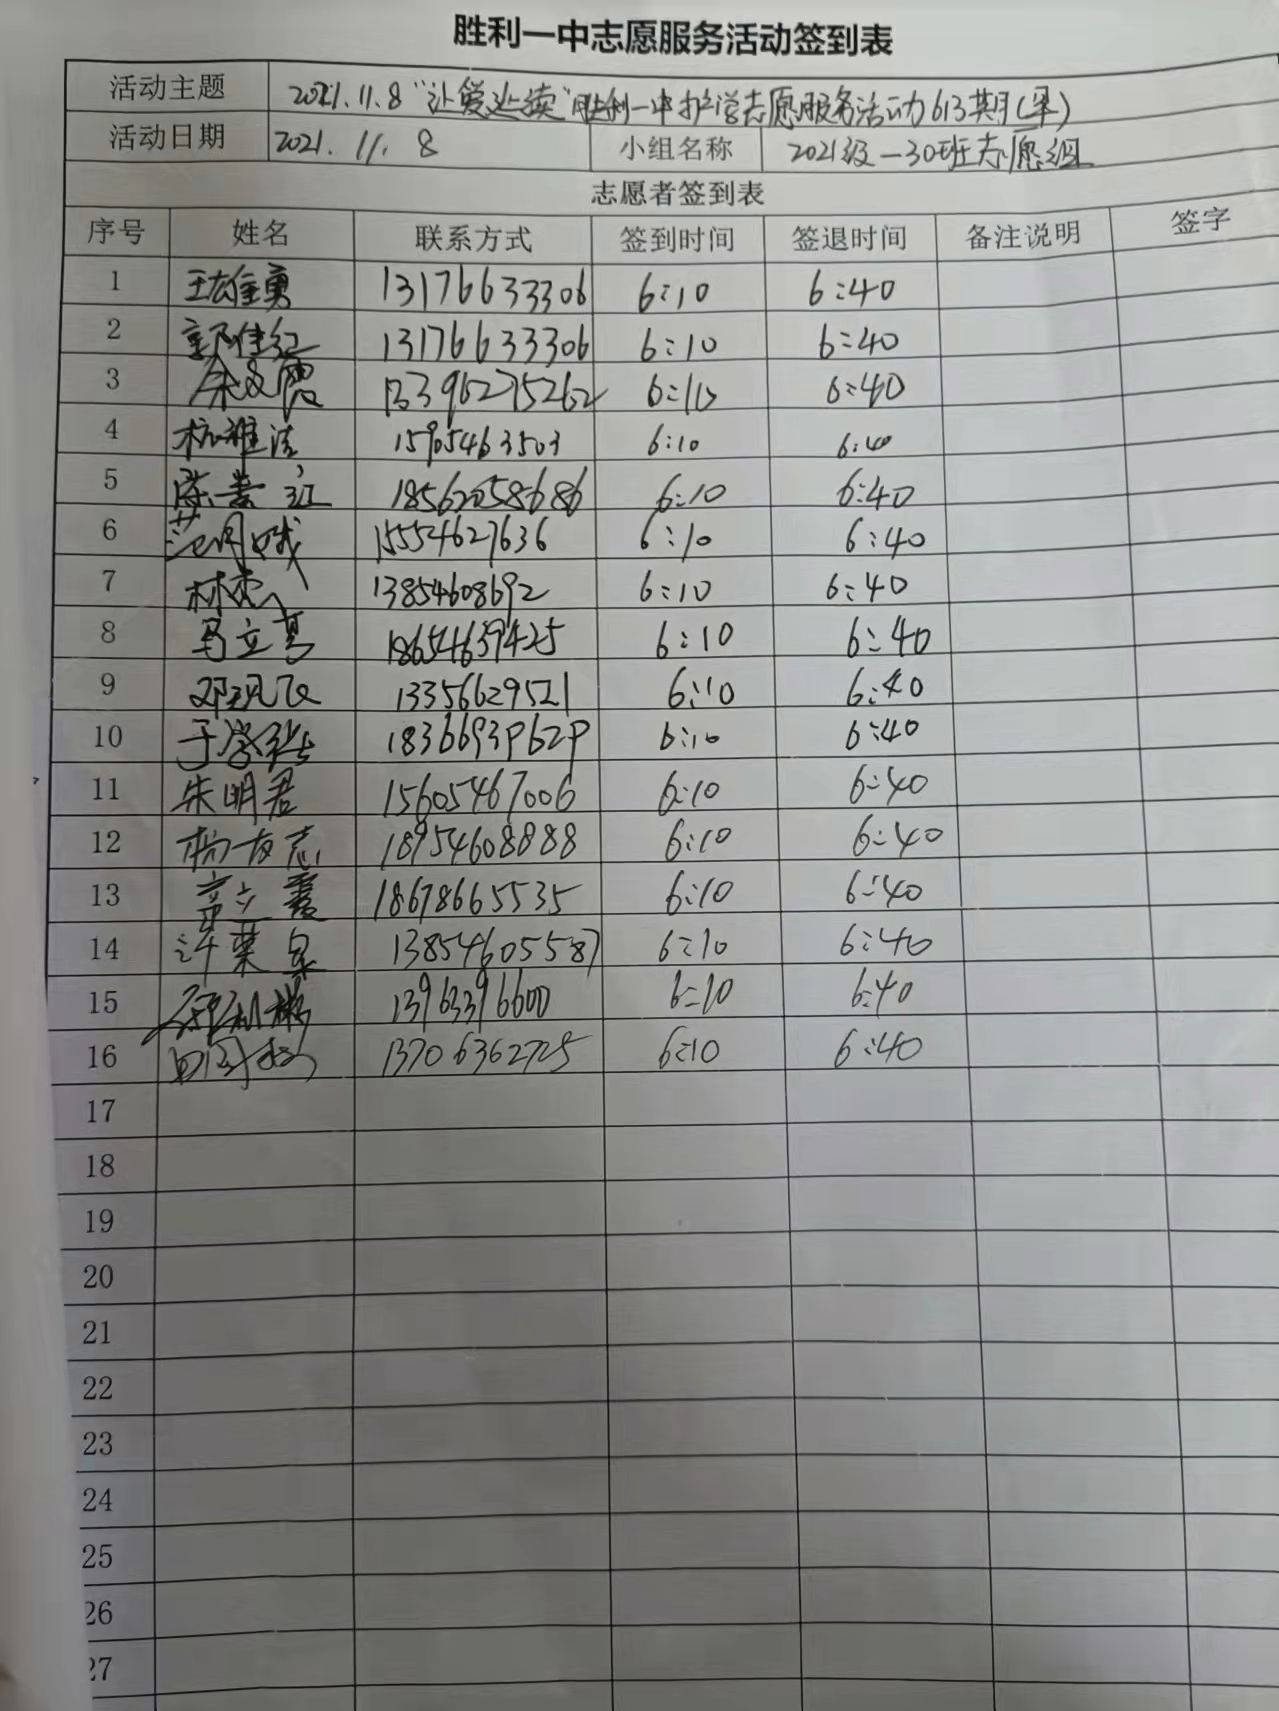 胜利一中志愿服务活动签到表
活动主题 2021.11.8 "让爱延续"胜利一中护学志愿服务活动613期(早)
活动日期 2021.11.8 小组名称 2021级-30班志愿组
志愿者签到表
序号 姓名 联系方式 签到时间 签退时间 备注说明 签字
1 13176633306 6:10 6:40
2 13176633306 6:10 6:40
3 6:10 6:40
4 15905463503 6:10 6:40
5 18562058686 6:10 6:40
6 15554627636 6:10 6:40
7 林杰 13854608692 6:10 6:40
8 18654639425 6:10 6:40
9 邓现飞 13356629521 6:10 6:40
10 6:10 6:40
11 朱明君 15605467006 6:10 6:40
12 杨友志 18954608888 6:10 6:40
13 章立霞 18678665535 6:10 6:40
14 许葉泉 13854605587 6:10 6:40
15 13963396600 6:10 6:40
16 13706362725 6:10 6:40
17
18
19
20
21
22
23
24
25
26
27